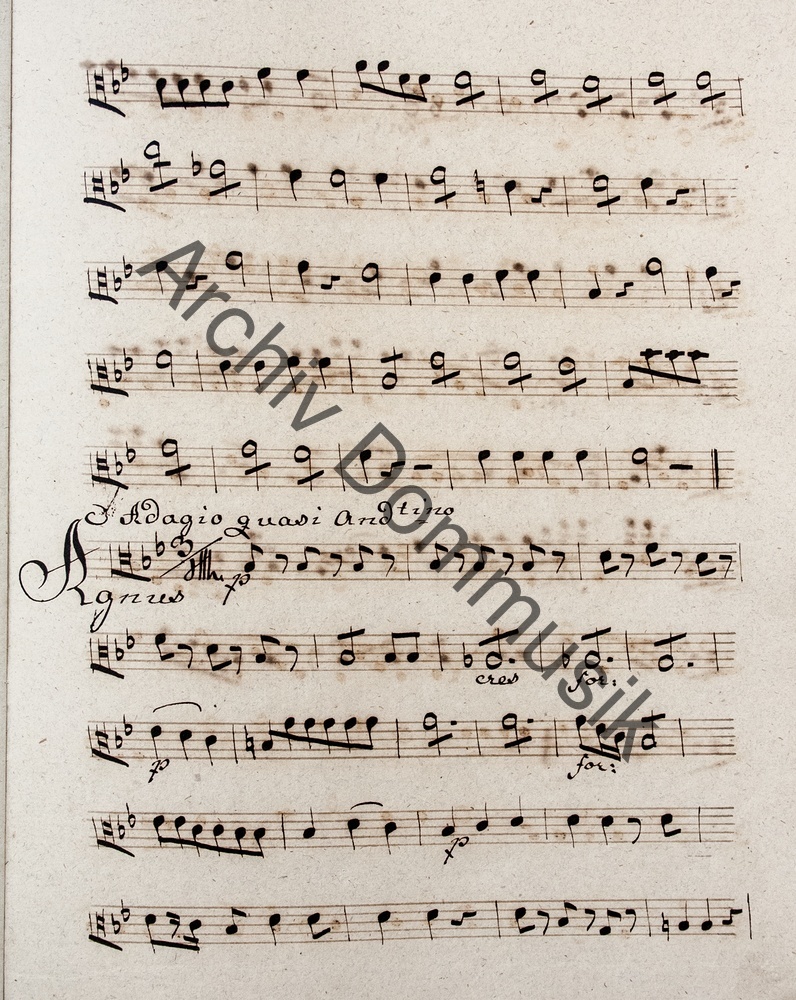 Adagio quasi Andtino
3
p
Agnus
cres for:
p for:
p
Archiv Dommusik